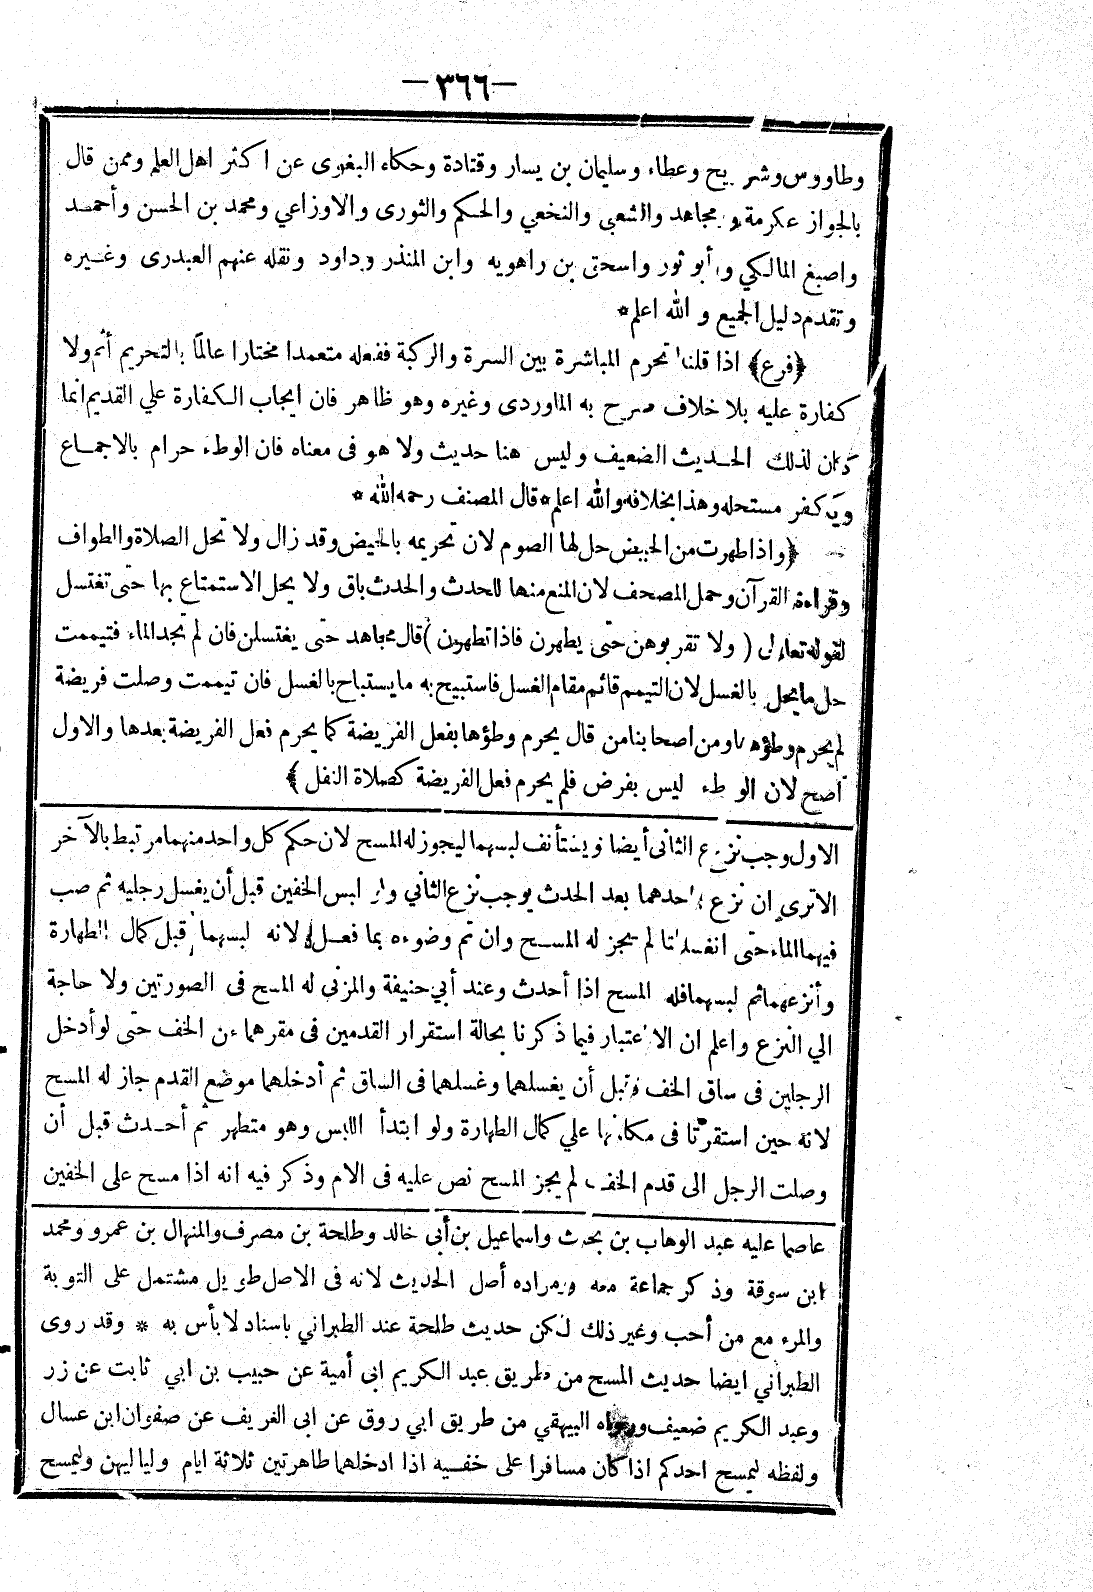 —٣٦٦—
وطاووس وشريح وعطاء وسليمان بن يسار وقتادة وحكاه البغوى عن اكثر اهل العلم وممن قال
بالجواز عكرمة ومجاهد والشعبى والنخعي والحكم والثورى والاوزاعي ومحمد بن الحسن وأحمد
واصبغ المالكي وأبو ثور واسحق بن راهويه وابن المنذر وداود ونقله عنهم العبدرى وغيره
وتقدم دليل الجميع و الله اعلم*
﴿فرع﴾ اذا قلنا تحرم المباشرة بين السرة والركبة ففعله متعمدا مختارا عالمًا بالتحريم أثم ولا
كفارة عليه بلا خلاف صرح به الماوردى وغيره وهو ظاهر فان ايجاب الكفارة علي القديم انما
كان لذلك الحديث الضعيف وليس هنا حديث ولا هو فى معناه فان الوطء حرام بالاجماع
ويكفر مستحله وهذا بخلافه والله اعلم * قال المصنف رحمه الله *
﴿واذا طهرت من الحيض حل لها الصوم لان تحريمه بالحيض وقد زال ولا تحل الصلاة والطواف
وقراءة القرآن وحمل المصحف لان المنع منها للحدث والحدث باق ولا يحل الاستمتاع بها حتى تغتسل
لقوله تعالى ( ولا تقربوهن حتى يطهرن فاذا تطهرن ) قال مجاهد حتى يغتسلن فان لم تجد الماء فتيممت
حل ما يحل بالغسل لان التيمم قائم مقام الغسل فاستبيح به ما يستباح بالغسل فان تيممت وصلت فريضة
لم يحرم وطؤها ومن اصحابنا من قال يحرم وطؤها بفعل الفريضة كما يحرم فعل الفريضة بعدها والاول
أصح لان الوطء ليس بفرض فلم يحرم فعل الفريضة كصلاة النفل ﴾
الاول وجب نزع الثانى أيضا ويستأنف لبسهما ليجوز له المسح لان حكم كل واحد منهما مرتبط بالآخر
الا ترى ان نزع احدهما بعد الحدث يوجب نزع الثاني ولو لبس الخفين قبل أن يغسل رجليه ثم صب
فيهما الماء حتى انغسلتا لم يجز له المسح وان تم وضوءه بما فعل لانه لبسهما قبل كمال الطهارة
وأنزعهما ثم لبسهما فله المسح اذا أحدث وعند أبي حنيفة والمزنى له المسح فى الصورتين ولا حاجة
الي النزع واعلم ان الاعتبار فيما ذكرنا بحالة استقرار القدمين فى مقرهما من الخف حتى لو أدخل
الرجلين فى ساق الخف قبل أن يغسلهما وغسلهما فى الساق ثم أدخلهما موضع القدم جاز له المسح
لانه حين استقرتا فى مكانها علي كمال الطهارة ولو ابتدأ اللبس وهو متطهر ثم أحدث قبل أن
وصلت الرجل الى قدم الخف لم يجز المسح نص عليه فى الام وذكر فيه انه اذا مسح على الخفين
عاصما عليه عبد الوهاب بن بخت واسماعيل بن أبى خالد وطلحة بن مصرف والمنهال بن عمرو ومحمد
ابن سوقة وذكر جماعة معه ومراده أصل الحديث لانه فى الاصل طويل مشتمل على التوبة
والمرء مع من أحب وغير ذلك لكن حديث طلحة عند الطبراني باسناد لا بأس به * وقد روى
الطبراني ايضا حديث المسح من طريق عبد الكريم ابى أمية عن حبيب بن ابي ثابت عن زر
وعبد الكريم ضعيف ورواه البيهقي من طريق ابي روق عن ابى الغريف عن صفوان ابن عسال
ولفظه ليمسح احدكم اذا كان مسافرا على خفيه اذا ادخلهما طاهرتين ثلاثة ايام ولياليهن وليمسح